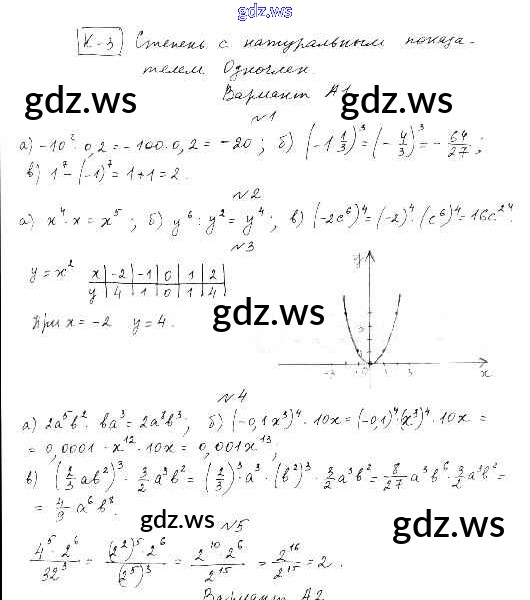 gdz.ws
К-3 Степень с натуральным показа-
телем. Одночлен.
Вариант А1
gdz.ws gdz.ws
№1
а) -10² · 0,2 = -100 · 0,2 = -20 ; б) (-1 1/3)³ = (-4/3)³ = -64/27 ;
в) 1⁷ - (-1)⁷ = 1 + 1 = 2.
№2
а) x⁴ · x = x⁵ ; б) y⁶ : y² = y⁴ ; в) (-2c⁶)⁴ = (-2)⁴ · (c⁶)⁴ = 16c²⁴
№3
y = x²
x | -2 | -1 | 0 | 1 | 2
y | 4 | 1 | 0 | 1 | 4
При x = -2 y = 4.
gdz.ws
y
-3 -1 0 1 3 x
№4
а) 2a⁵b² · ba³ = 2a⁸b³ ; б) (-0,1x³)⁴ · 10x = (-0,1)⁴ · (x³)⁴ · 10x =
= 0,0001 · x¹² · 10x = 0,001x¹³ ,
в) (2/3 ab²)³ · 3/2 a³b² = (2/3)³ · a³ · (b²)³ · 3/2 a³b² = 8/27 a³b⁶ · 3/2 a³b² =
= 4/9 a⁶b⁸.
gdz.ws gdz.ws
№5
4⁵ · 2⁶ / 32³ = (2²)⁵ · 2⁶ / (2⁵)³ = 2¹⁰ · 2⁶ / 2¹⁵ = 2¹⁶ / 2¹⁵ = 2 .
Вариант А2